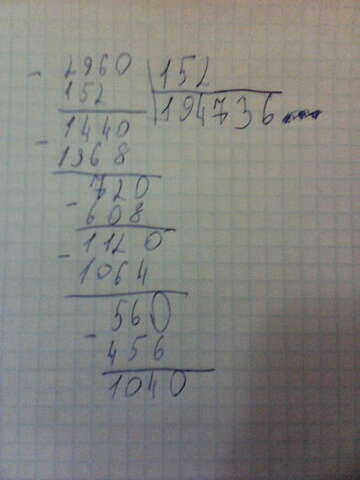 - 2960 152
152 194736
1440
- 1368
720
- 608
1120
- 1064
560
- 456
1040